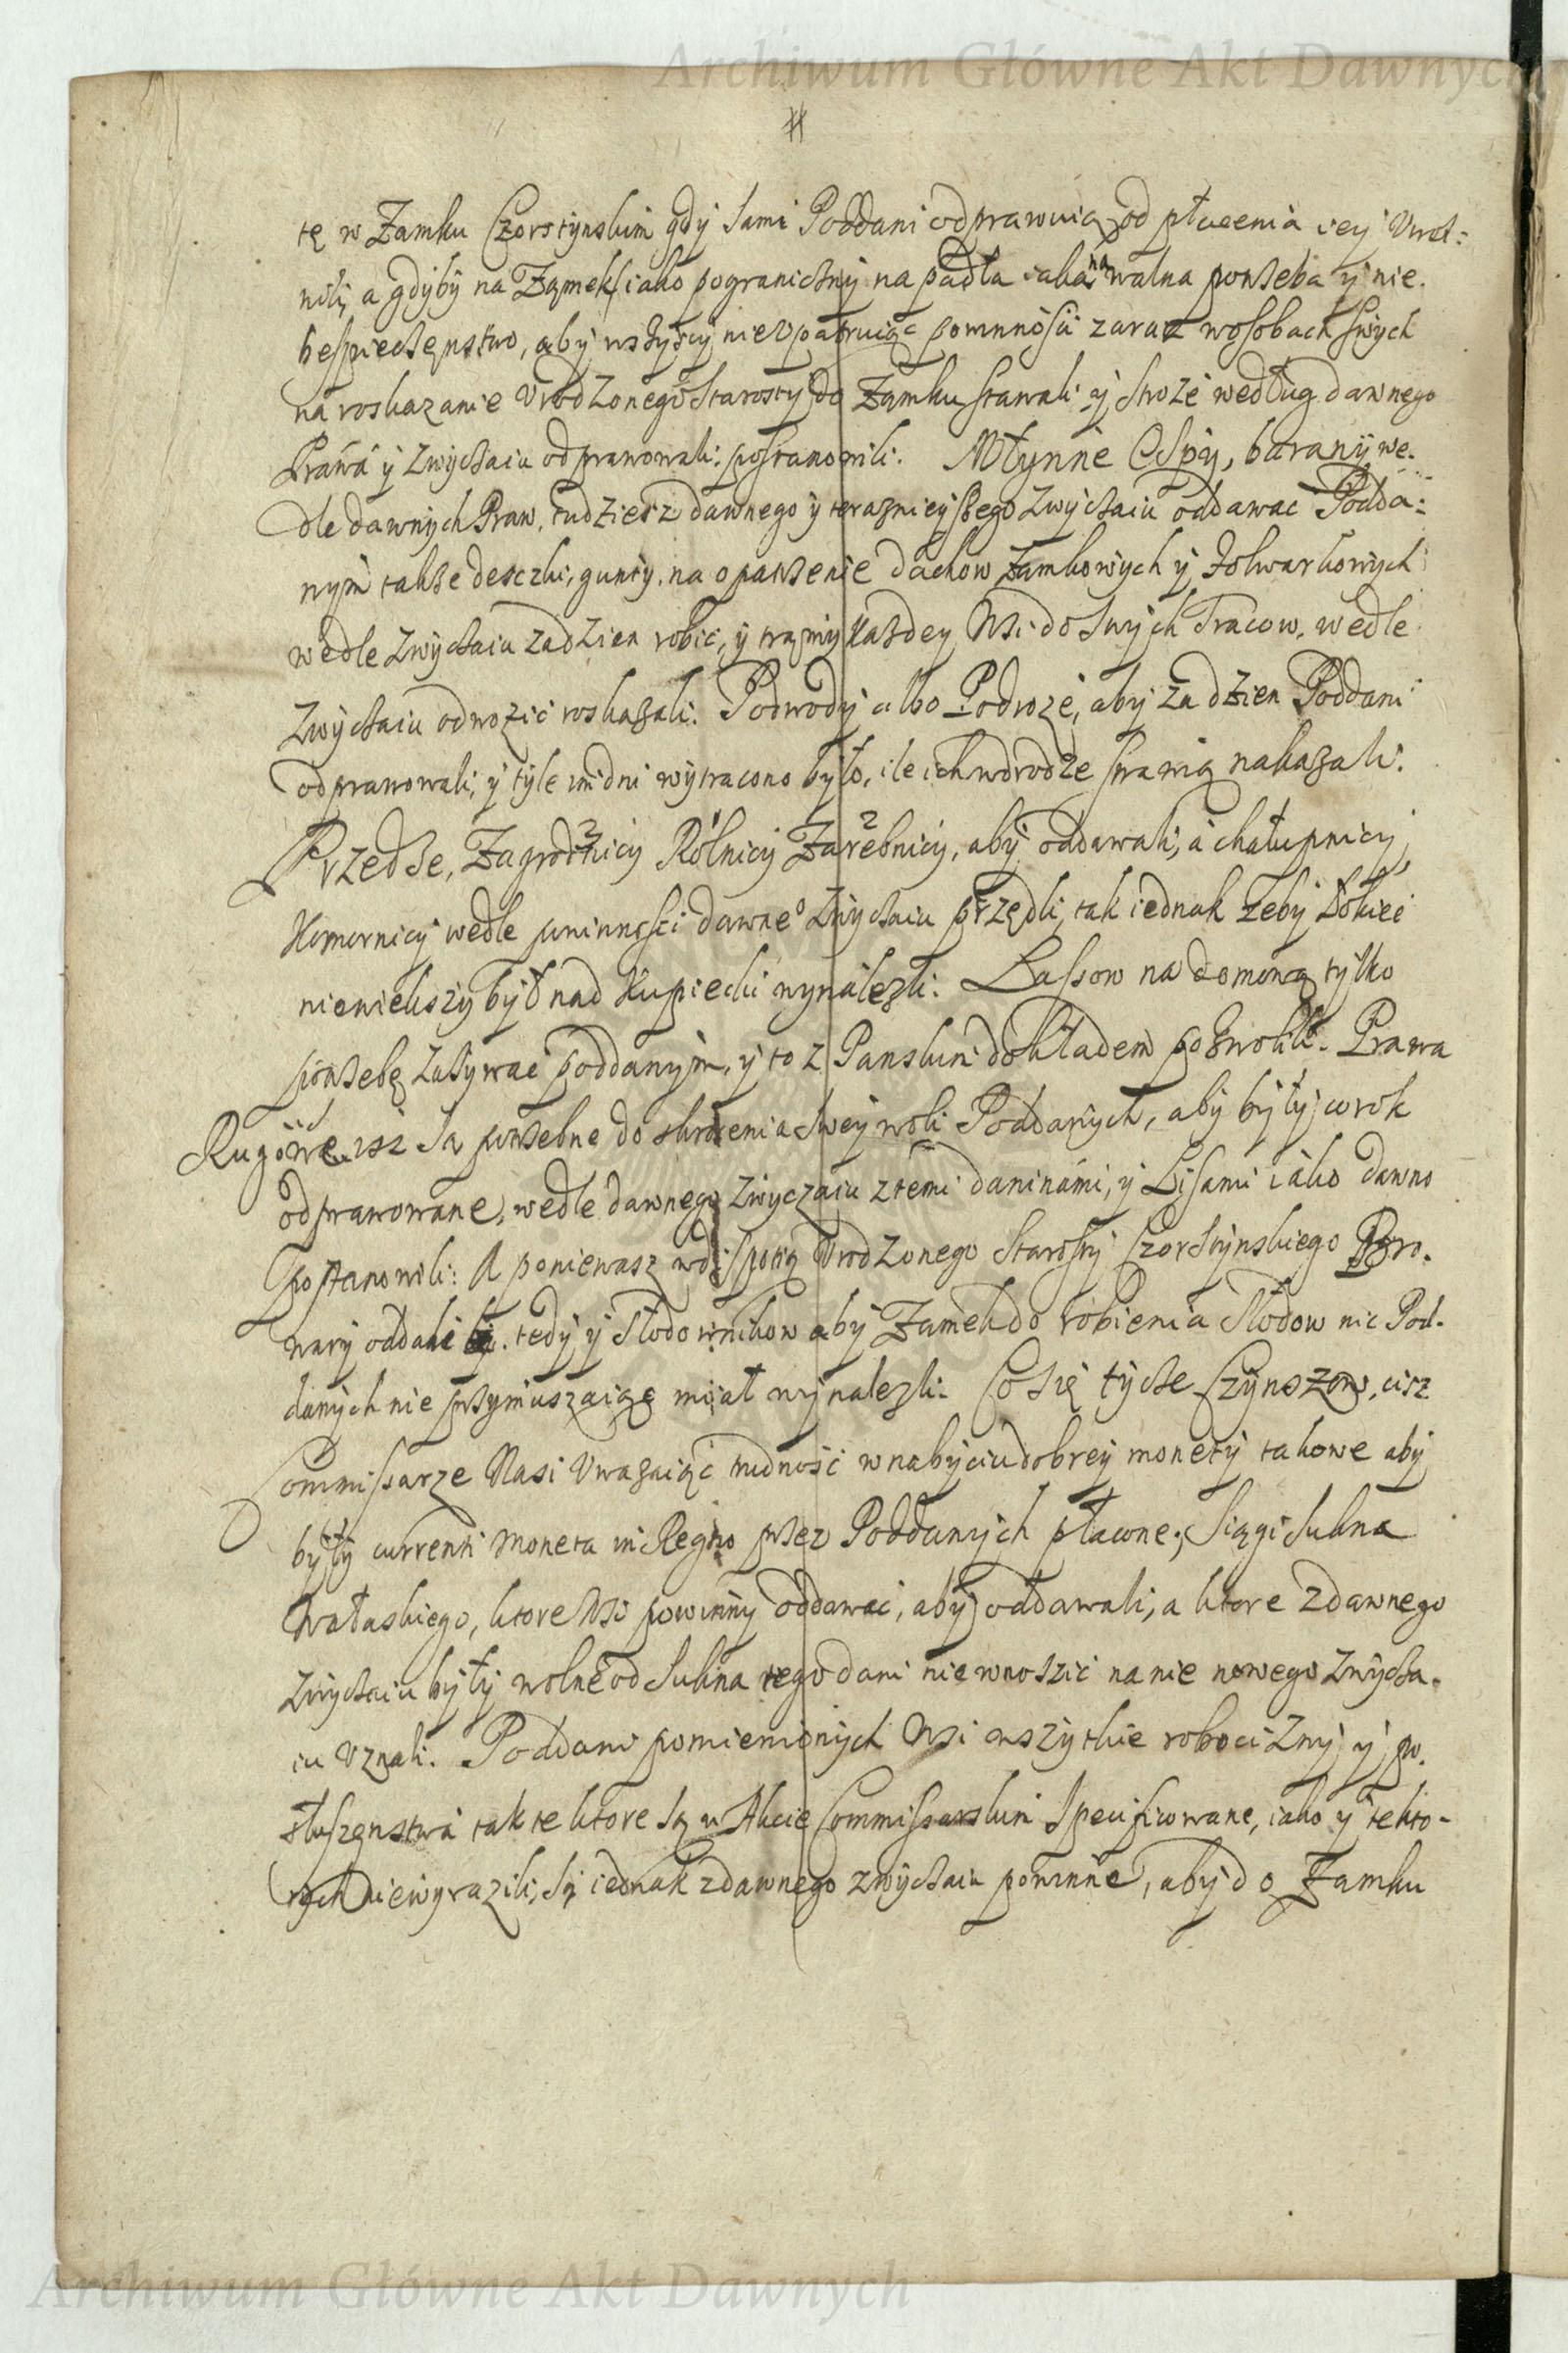 Archiwum Główne Akt Dawnych
tę w Zamku Czorstynskim gdy sami Poddani odprawuią, od płacenia iey Uwol:
nili, a gdyby na Zamek iako pograniczny napadła iaka nawalna potrzeba y nie.
bespieczęnstwo, aby wszyscy nieopatruiąc powinnosci zaraz wosobach swych
na roskazanie Urodzonego Starosty do Zamku stawali y stroże według dawnego
Prawa y zwyczaiu odprawowali, postanowili. Młynne Ospy, barany we.
dle dawnych Praw, tudziesz dawnego y terasnieyszego zwyczaiu oddawac Podda:
nym także desczki, gunty, na oparzenie dachow zamkowych y folwarkowych
wedle zwyczaiu zadzien robic, y tramy każdey Wsi do swych Tracow, wedle
zwyczaiu odwozic roskazali. Podwody albo Podroże, aby za dzien Poddani
odprawowali, y tyle im dni wytrącono było, ile ich wdrodze strawią nakazali.
Przędze, Zagrodnicy Rolnicy Zarębnicy, aby oddawali, a chałupnicy,
Komornicy wedle powinnosci dawneo zwyczaiu przędli, tak iednak żeby Łokiec
niewiekszy był nad Kupiecki wynalezli. Lassow na domową tylko
potrzebę zażywac poddanym, y to z Panskim dokładem pozwolili. Prawa
Rugowe, isz są potrzebne do skrocenia swey woli Poddanych, aby były corok
odprawowane, wedle dawnego zwyczaiu ztemi daninami, y Lisami iako dawno
postanowili: A poniewasz wdispositią Urodzonego Starosty Czorstynskiego Bro.
wary oddali. tedy y Słodownikow aby Zamek do robienia Słodow nic Pod.
danych nie przymuszaiąc miał wynalezli. Co się tycze Czynszow, cisz
Commissarze Nasi Uwazaiąc trudnosć wnabyciu dobrey monety takowe aby
były currenti moneta in Regno przez Poddanych płacone, Siągi Sukna
Wałaskiego, ktore Wsi powinny oddawac, aby oddawali, a ktore zdawnego
zwyczaiu były wolne od Sukna tego dani nie wnoszic na nie nowego zwycza.
iu Uznali. Poddani pomienionych Wsi wszytkie robocizny y po.
słuszęnstwa tak te ktore są w Akcie Commissarskim specificowane, iako y tekto-
rych niewyrazili, są iednak zdawnego zwyczaiu powinne, aby do Zamku
Archiwum Główne Akt Dawnych